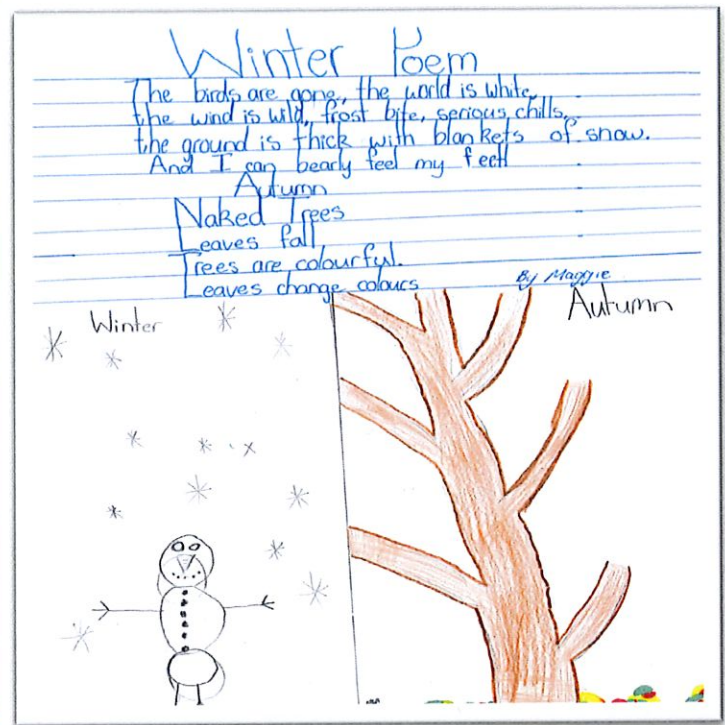 Winter Poem
The birds are gone, the world is white,
the wind is wild, frost bite, serious, chills,
the ground is thick with blankets of snow.
And I can bearly feel my feet!
Autumn
Naked Trees
Leaves fall
Trees are colourful.
Leaves change colours
By Maggie
Winter
Autumn